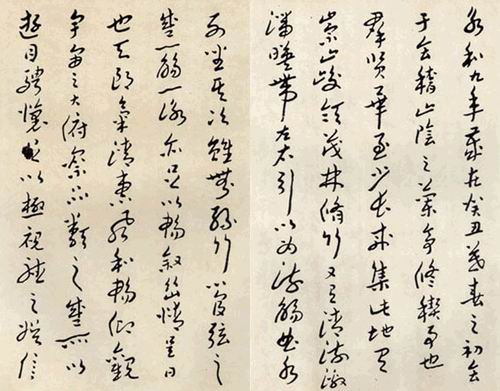 永和九年歲在癸丑暮春之初會
于會稽山陰之蘭亭修禊事也
羣賢畢至少長咸集此地有
崇山峻領茂林修竹又有清流激
湍暎帶左右引以為流觴曲水
列坐其次雖無絲竹管弦之
盛一觴一詠亦足以暢敘幽情是日
也天朗氣清惠風和暢仰觀
宇宙之大俯察品類之盛所以
遊目騁懷足以極視聽之娛信